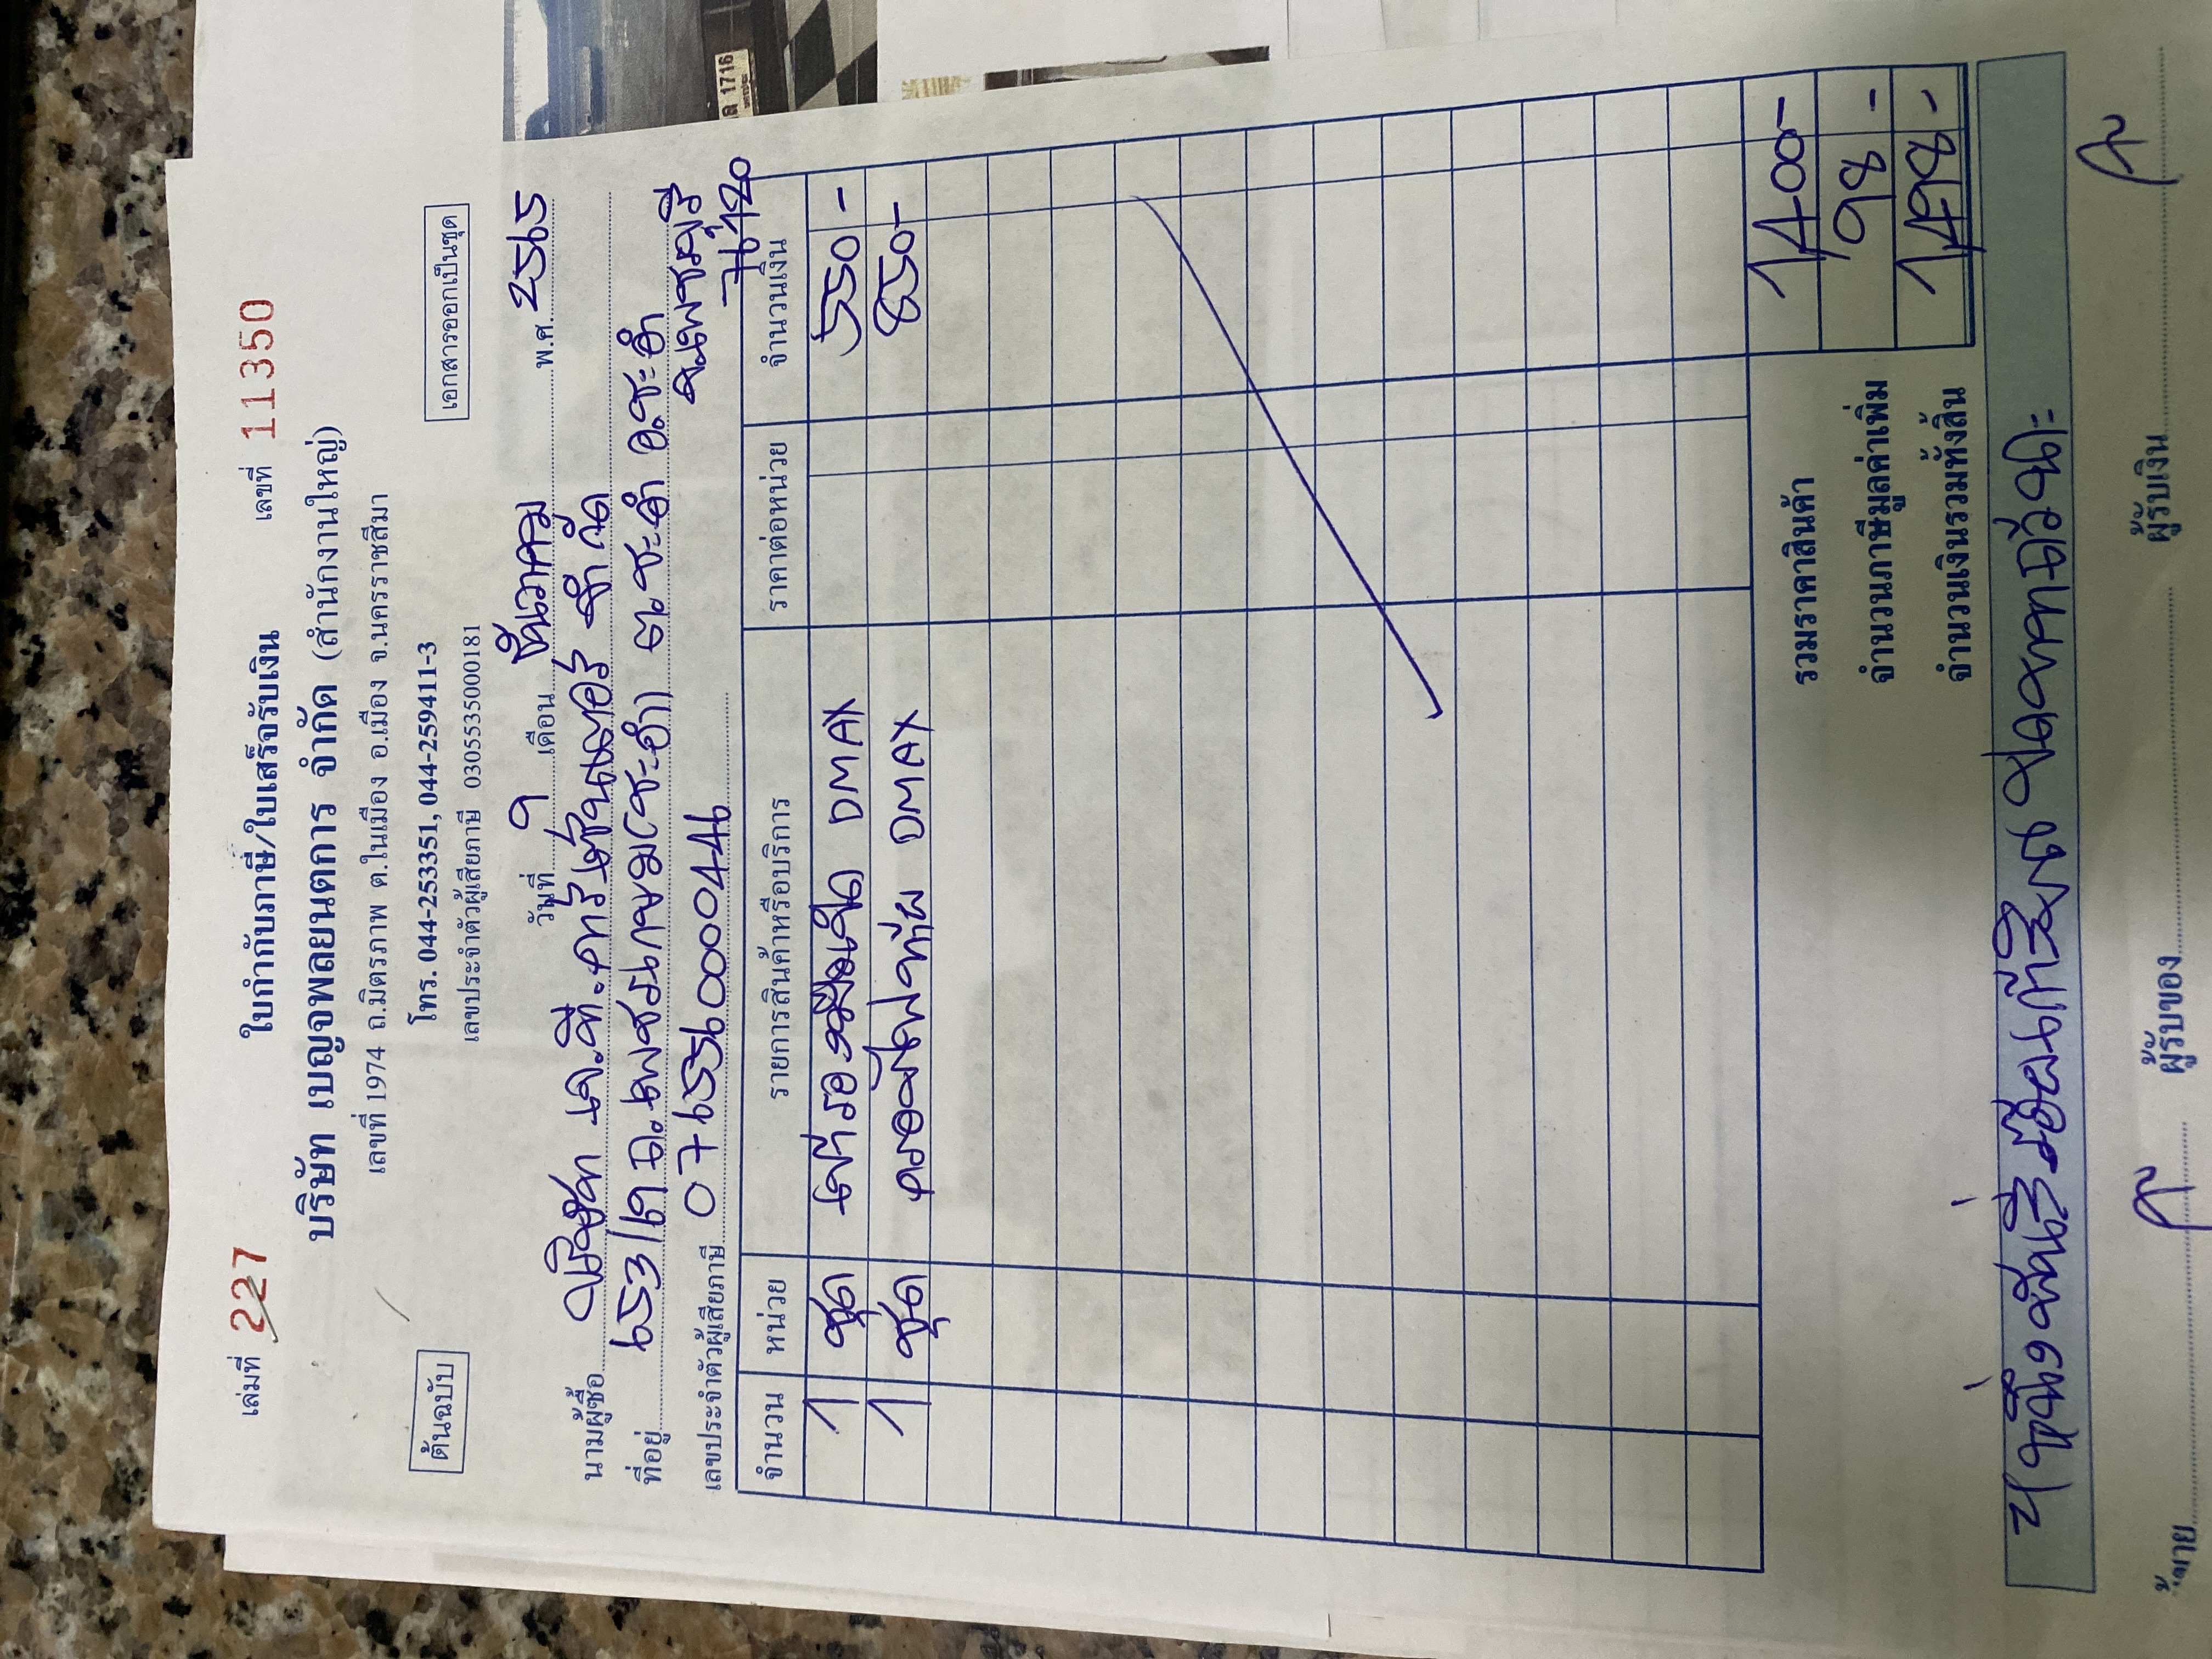 เล่มที่ 227 ใบกำกับภาษี/ใบเสร็จรับเงิน เลขที่ 11350
บริษัท เบญจพลยนตการ จำกัด (สำนักงานใหญ่)
เลขที่ 1974 ถ.มิตรภาพ ต.ในเมือง อ.เมือง จ.นครราชสีมา
ต้นฉบับ โทร. 044-253351, 044-259411-3 เอกสารออกเป็นชุด
เลขประจำตัวผู้เสียภาษี 0305535000181
วันที่ 9 เดือน ธันวาคม พ.ศ. 2565
นามผู้ซื้อ บริษัท เจ.พี.คาร์เซ็นเตอร์ จำกัด
ที่อยู่ 653/เจ ถ.เพชรเกษม(ชะอำ) ต.ชะอำ อ.ชะอำ
จ.เพชรบุรี
เลขประจำตัวผู้เสียภาษี 0765560000446 76120
จำนวน หน่วย รายการสินค้าหรือบริการ ราคาต่อหน่วย จำนวนเงิน
1 ชุด DMAX 550 -
1 ชุด ครอบไฟท้าย DMAX 850 -
รวมราคาสินค้า 1400 -
จำนวนภาษีมูลค่าเพิ่ม 98 -
จำนวนเงินรวมทั้งสิ้น 1498 -
หนึ่งพันสี่ร้อยเก้าสิบแปดบาทถ้วน
ผู้รับของ ผู้รับเงิน
1716